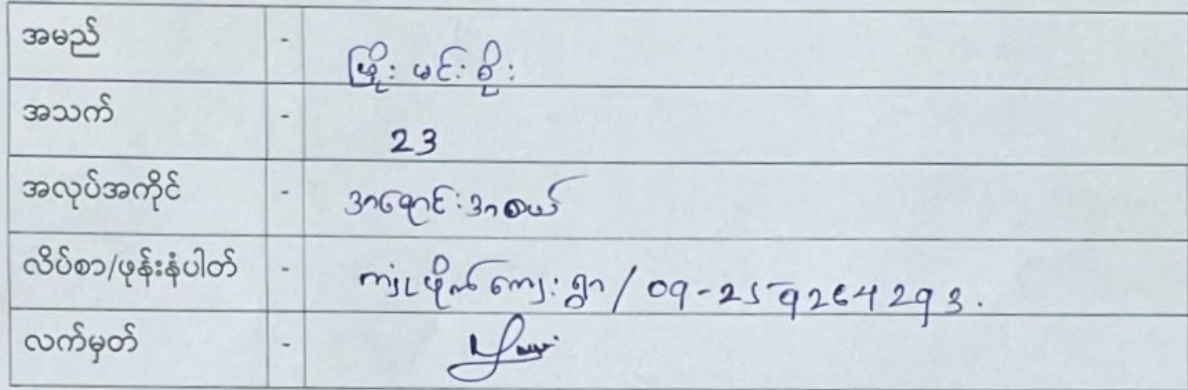 အမည် - ဖြိုးမင်းစိုး
အသက် - 23
အလုပ်အကိုင် - အရောင်းအဝယ်
လိပ်စာ/ဖုန်းနံပါတ် - ကျေးရွာ / 09-259264293.
လက်မှတ် -